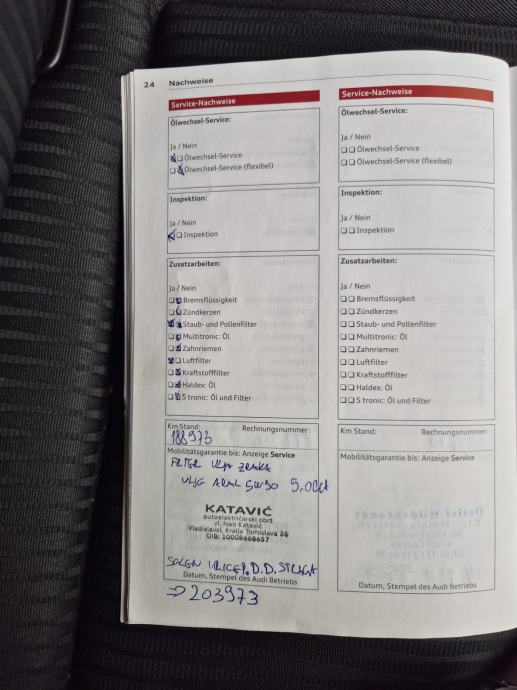 24 Nachweise
Service-Nachweise
Ölwechsel-Service:
Ja / Nein
Ölwechsel-Service
Ölwechsel-Service (flexibel)
Inspektion:
Ja / Nein
Inspektion
Zusatzarbeiten:
Ja / Nein
Bremsflüssigkeit
Zündkerzen
Staub- und Pollenfilter
Multitronic: Öl
Zahnriemen
Luftfilter
Kraftstofffilter
Haldex: Öl
S tronic: Öl und Filter
Km Stand: Rechnungsnummer:
188973
Mobilitätsgarantie bis: Anzeige Service
FILTER ULJA ZRAKA
ULJE ARAL 5W30 5,00lit
KATAVIĆ
autoelektričarski obrt
vl. Ivan Katavić
Vladislavci, Kralja Tomislava 36
OIB: 10008668657
D.D.
Datum, Stempel des Audi Betriebs
⇒ 203973
Service-Nachweise
Ölwechsel-Service:
Ja / Nein
Ölwechsel-Service
Ölwechsel-Service (flexibel)
Inspektion:
Ja / Nein
Inspektion
Zusatzarbeiten:
Ja / Nein
Bremsflüssigkeit
Zündkerzen
Staub- und Pollenfilter
Multitronic: Öl
Zahnriemen
Luftfilter
Kraftstofffilter
Haldex: Öl
S tronic: Öl und Filter
Km Stand: Rechnungsnummer:
Mobilitätsgarantie bis: Anzeige Service
Datum, Stempel des Audi Betriebs